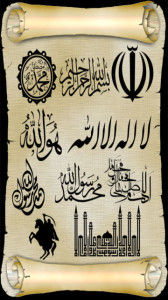 بسم الله الرحمن الرحيم
محمد
لا اله الا الله
هو الله
محمد رسول الله
محمد رسول الله